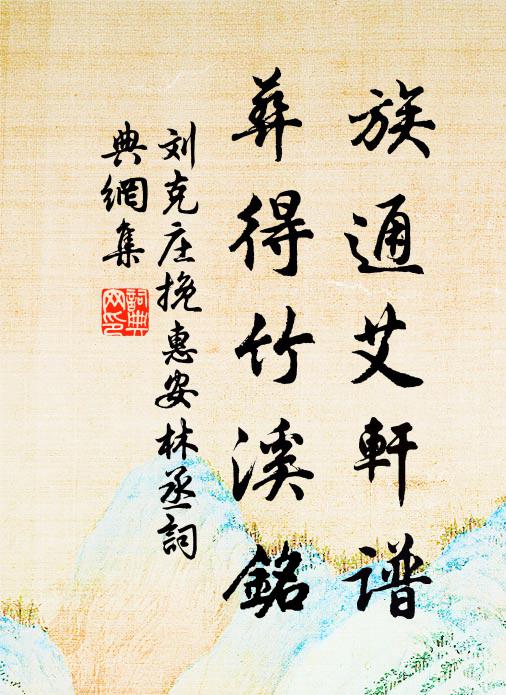 族通艾軒譜
葬得竹溪銘
刘克庄挽惠安林丞詞
典網集
詞典
网印